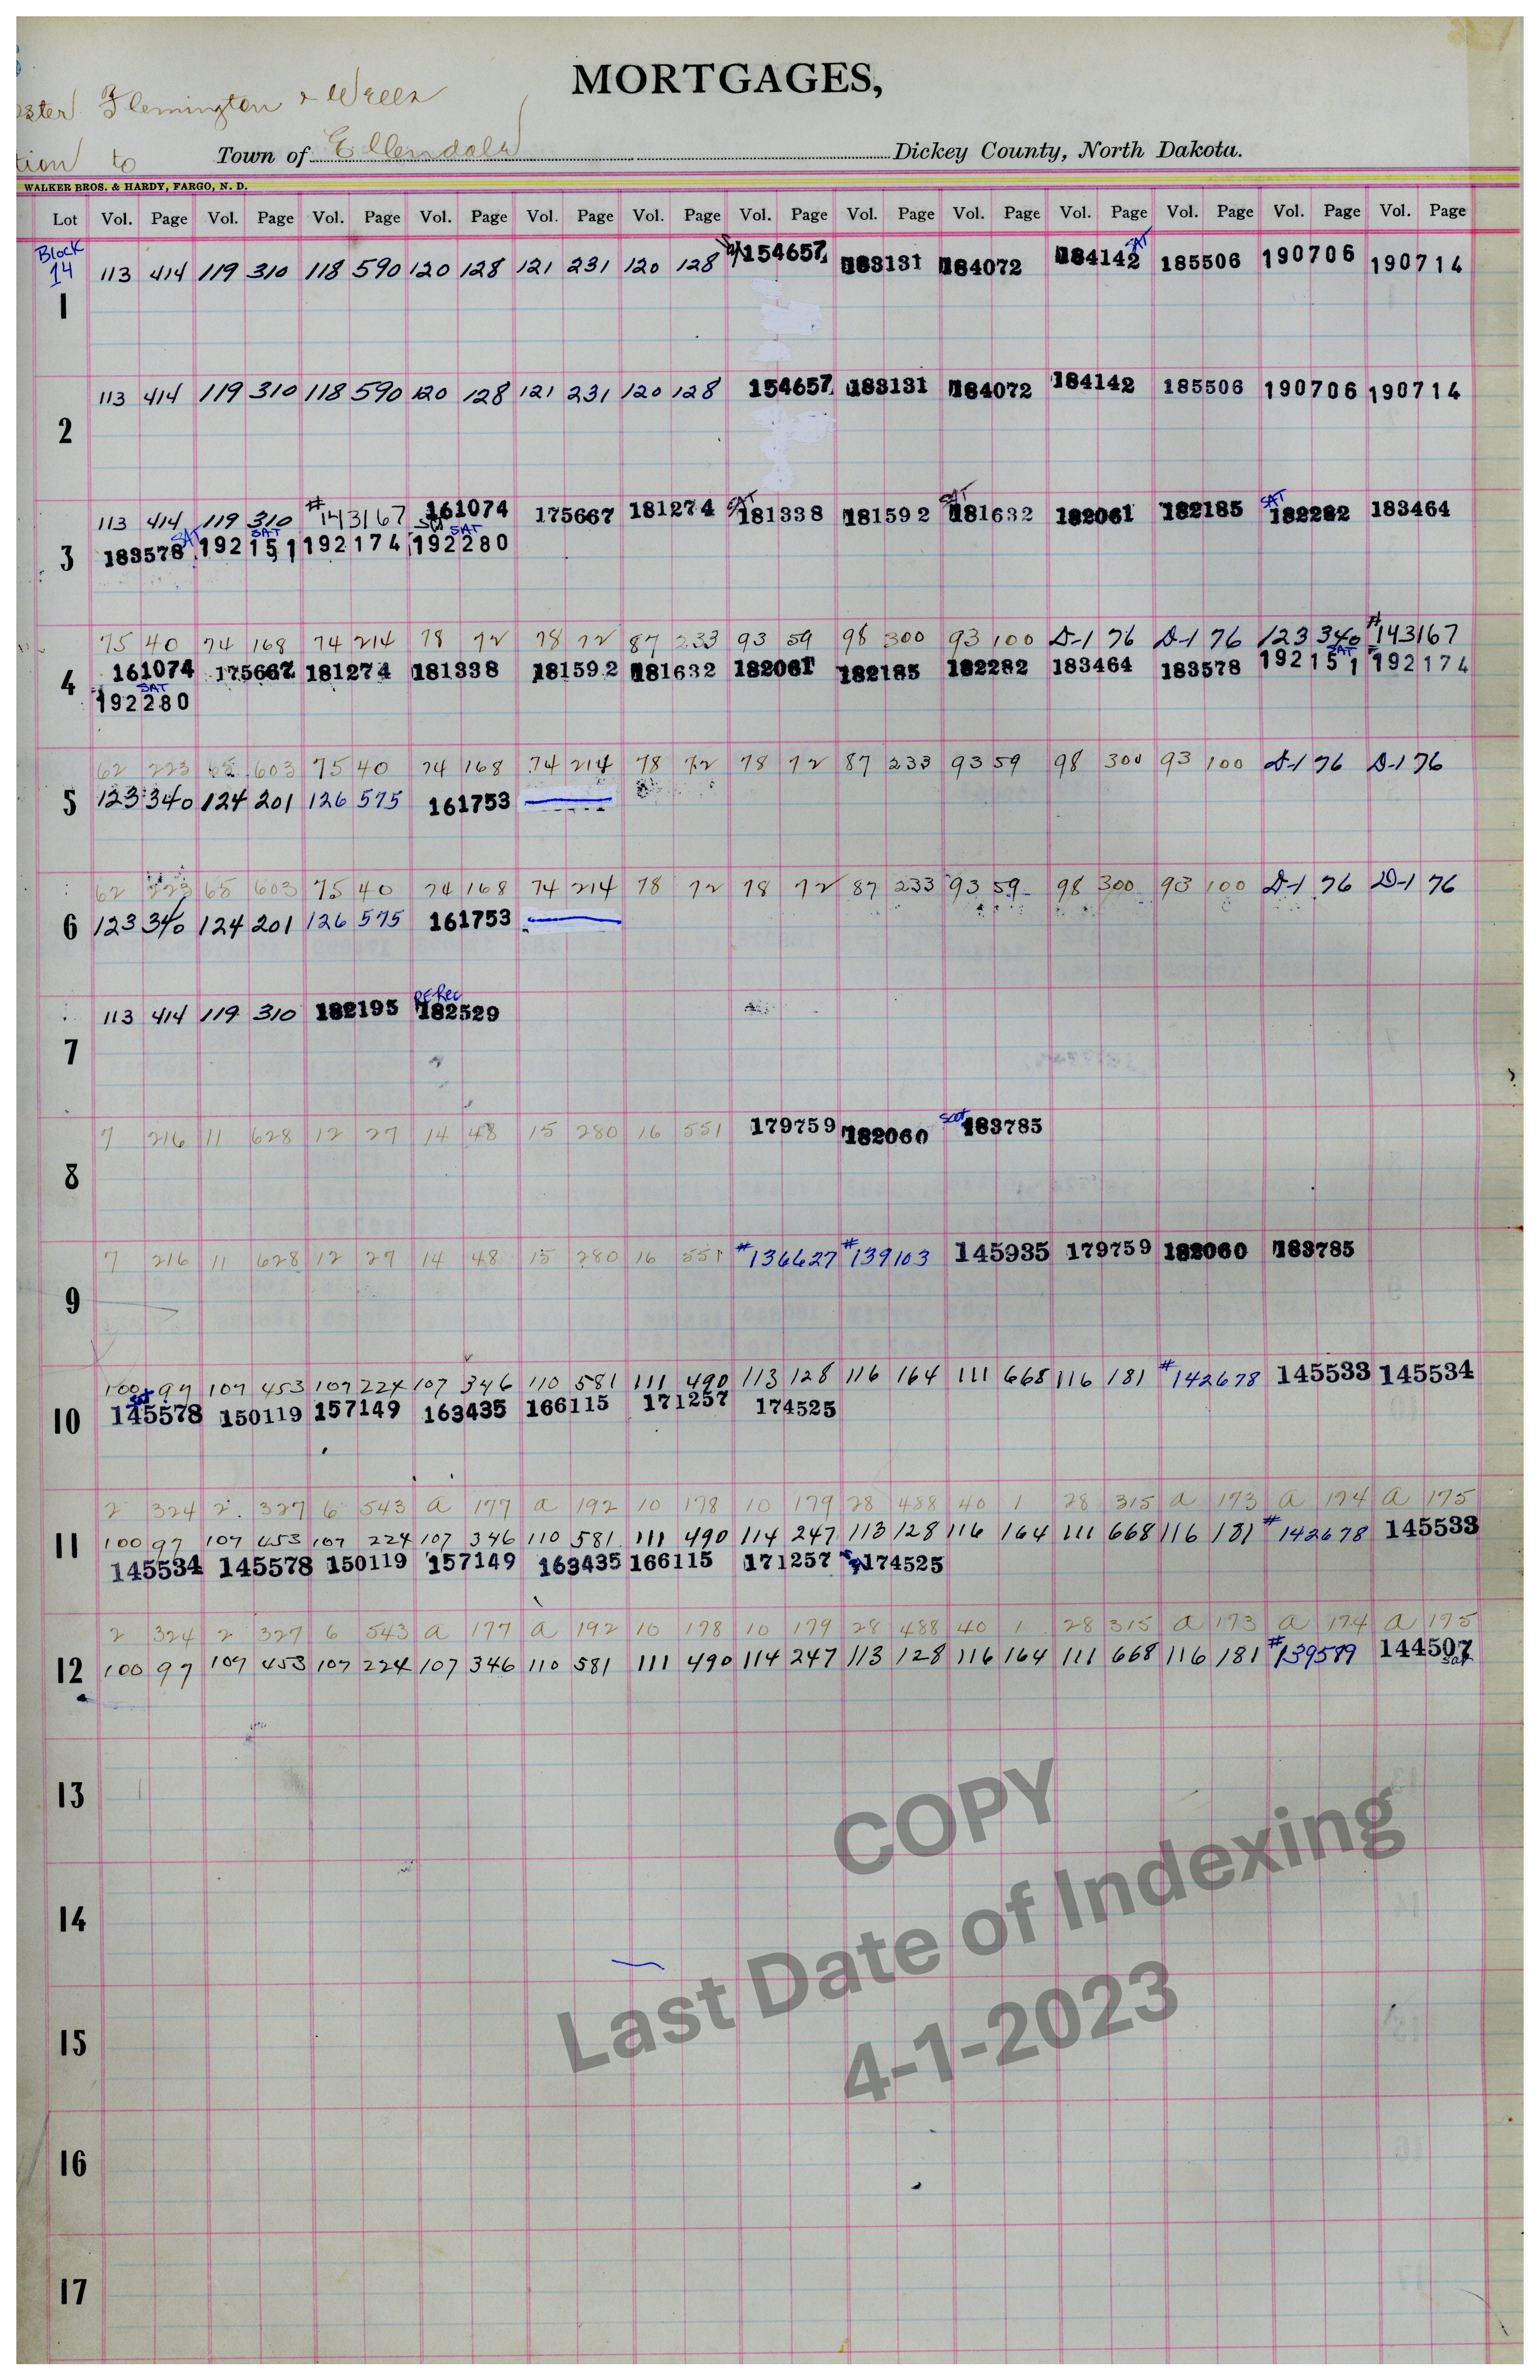 MORTGAGES,
Flemington & Wells
to Town of Ellendale Dickey County, North Dakota.
WALKER BROS. & HARDY, FARGO, N. D.
Lot Vol. Page Vol. Page Vol. Page Vol. Page Vol. Page Vol. Page Vol. Page Vol. Page Vol. Page Vol. Page Vol. Page Vol. Page Vol. Page
Block 14
113 414 119 310 118 590 120 128 121 231 120 128 154657 183131 184072 184142 SAT 185506 190706 190714
1
113 414 119 310 118 590 120 128 121 231 120 128 154657 183131 184072 184142 185506 190706 190714
2
113 414 119 310 #143167 161074 175667 181274 SAT 181338 181592 SAT 181632 182061 182185 SAT 182282 183464
3 183578 SAT 192151 SAT 192174 192280 SAT
75 40 74 168 74 214 78 72 78 72 87 233 93 59 98 300 93 100 D-1 76 D-1 76 123 340 #143167
4 161074 175667 181274 181338 181592 181632 182061 182185 182282 183464 183578 192151 SAT 192174
192280 SAT
62 223 65 603 75 40 74 168 74 214 78 72 78 72 87 233 93 59 98 300 93 100 D-1 76 D-1 76
5 123 340 124 201 126 575 161753
62 223 65 603 75 40 74 168 74 214 78 72 78 72 87 233 93 59 98 300 93 100 D-1 76 D-1 76
6 123 340 124 201 126 575 161753
113 414 119 310 182195 ReRec 182529
7
7 216 11 628 12 27 14 48 15 280 16 551 179759 182060 Sat 183785
8
7 216 11 628 12 27 14 48 15 280 16 551 #136627 #139103 145935 179759 182060 183785
9
100 97 107 453 107 224 107 346 110 581 111 490 113 128 116 164 111 668 116 181 #142678 145533 145534
10 Sat 145578 150119 157149 163435 166115 171257 174525
2 324 2 327 6 543 a 177 a 192 10 178 10 179 28 488 40 1 28 315 a 173 a 174 a 175
11 100 97 107 453 107 224 107 346 110 581 111 490 114 247 113 128 116 164 111 668 116 181 #142678 145533
145534 145578 150119 157149 163435 166115 171257 174525
2 324 2 327 6 543 a 177 a 192 10 178 10 179 28 488 40 1 28 315 a 173 a 174 a 175
12 100 97 107 453 107 224 107 346 110 581 111 490 114 247 113 128 116 164 111 668 116 181 #139589 144507 Sat
13
14
15
16
17
COPY
Last Date of Indexing
4-1-2023